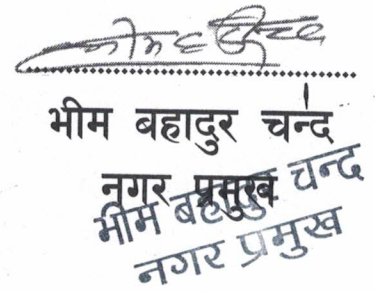 भीम बहादुर चन्द
नगर प्रमुख
भीम बहादुर चन्द
नगर प्रमुख